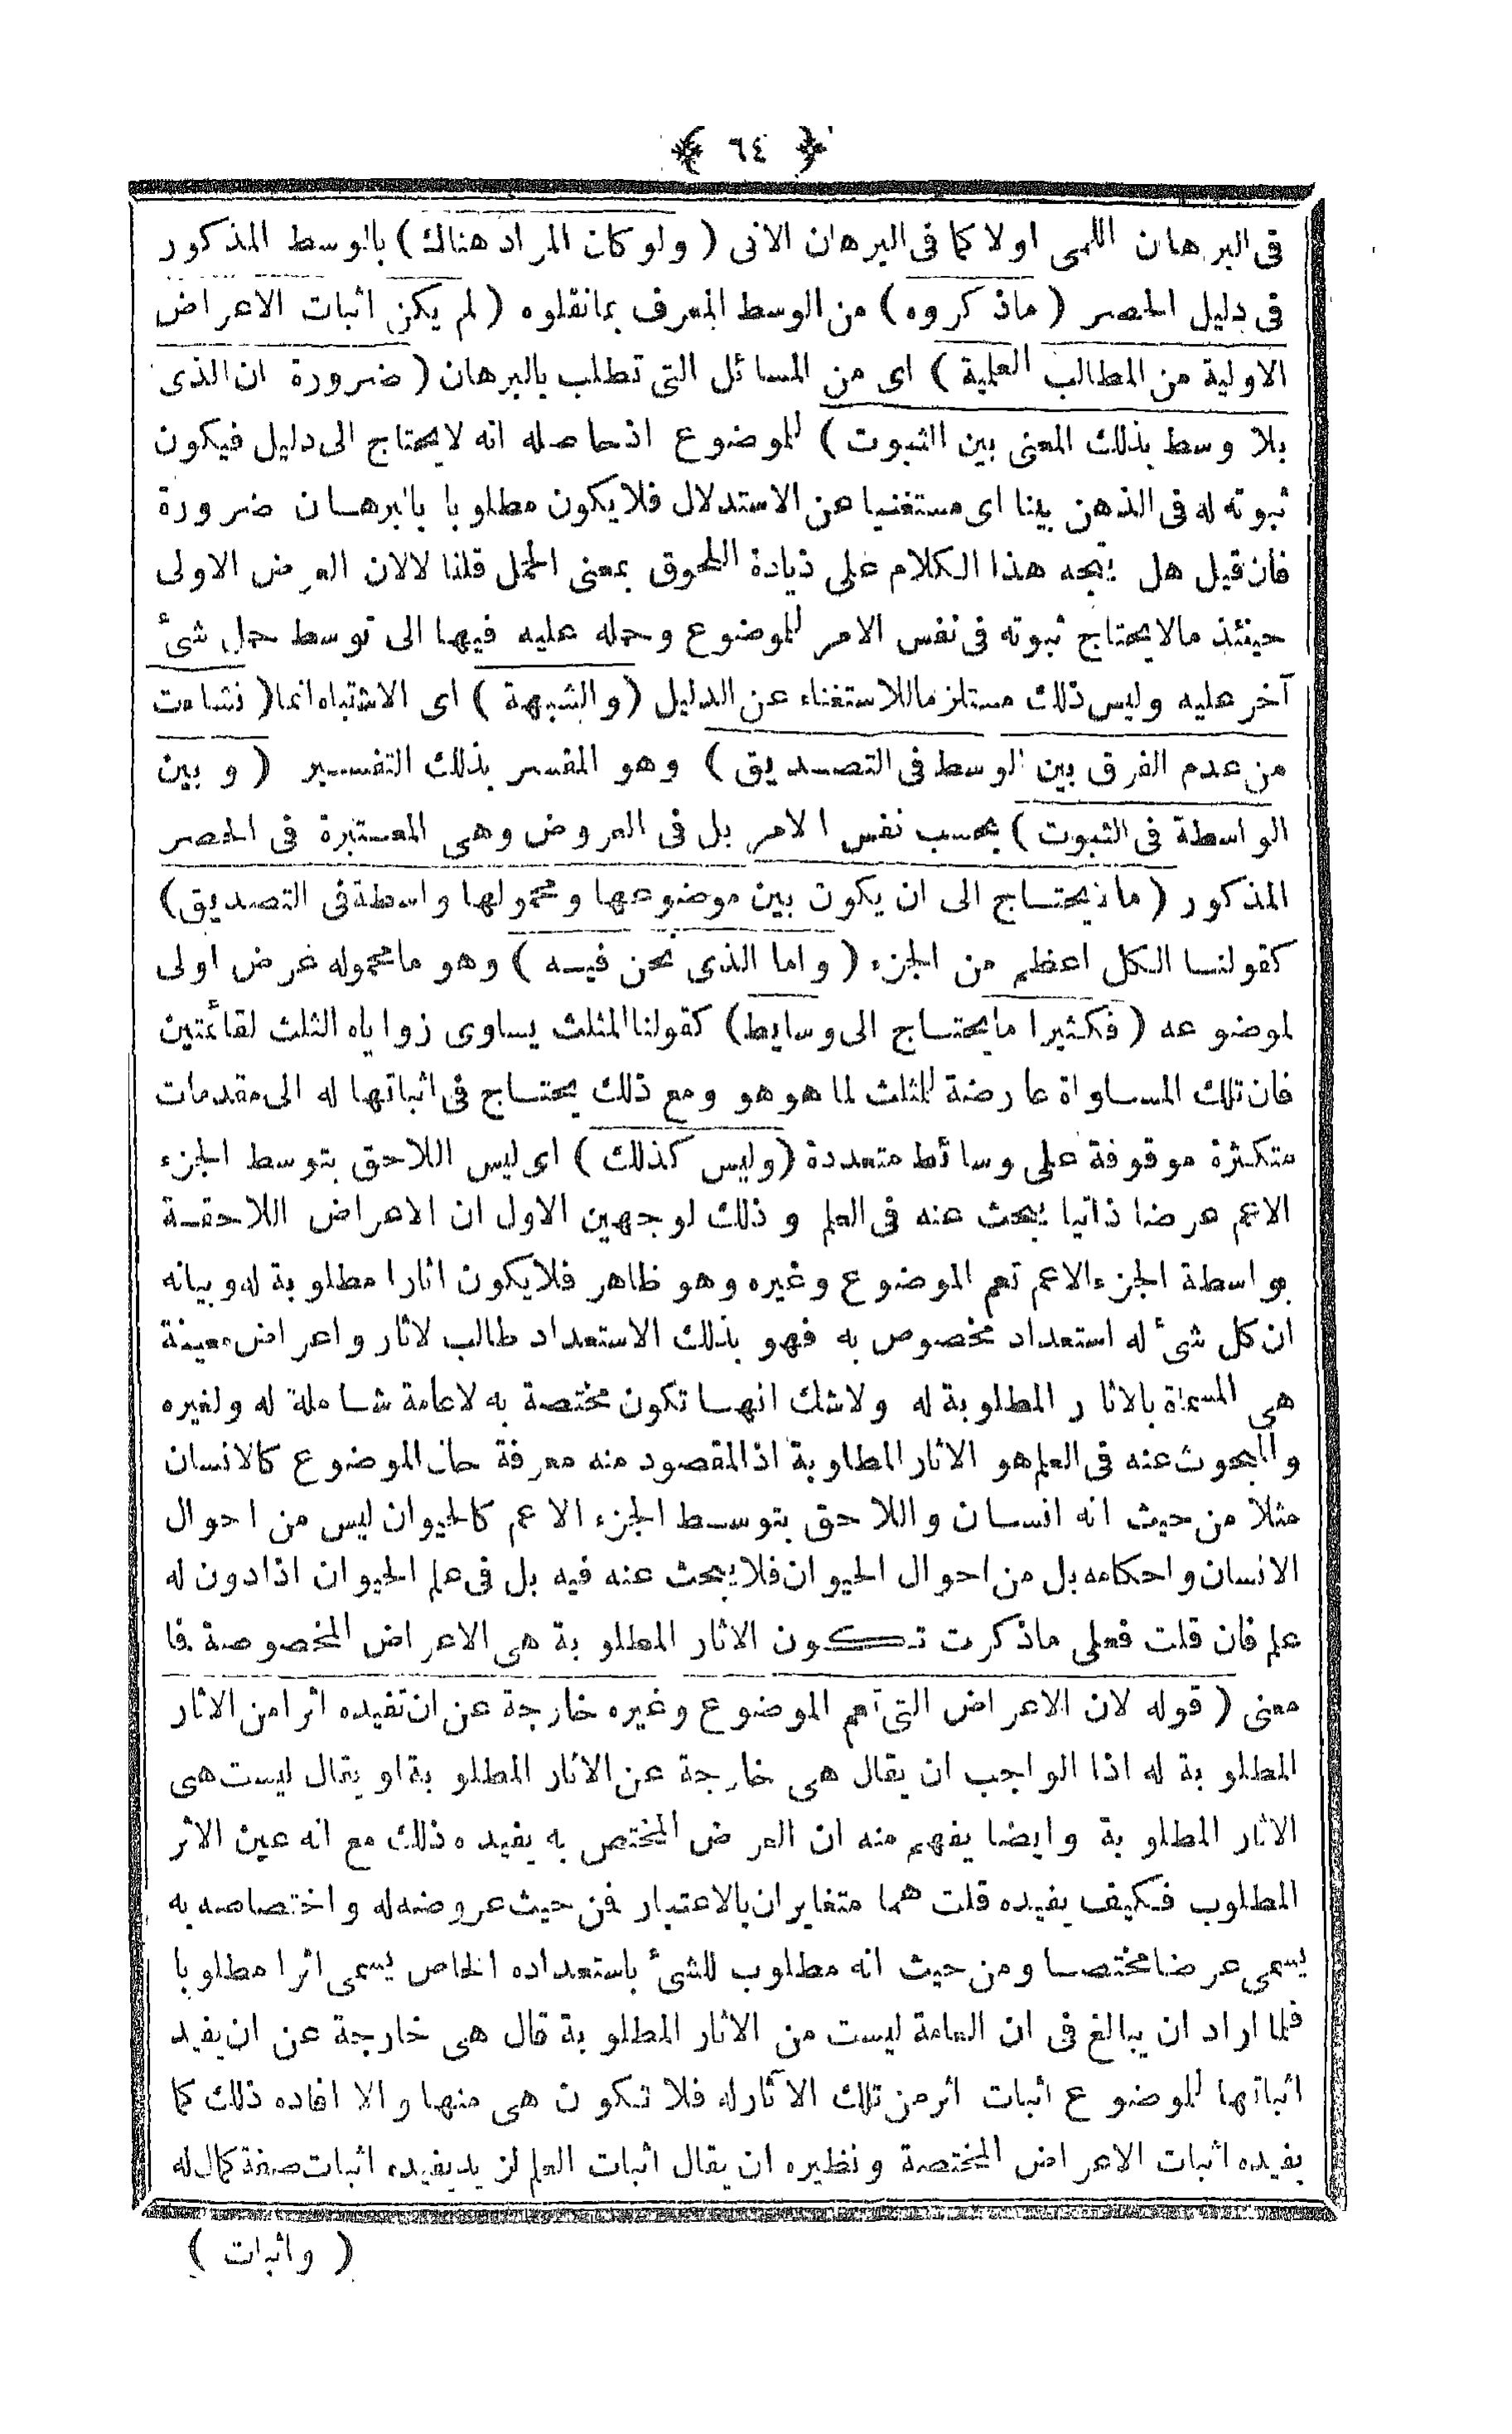 ﴿ ٦٤ ﴾
فى البرهان اللمى اولا كما فى البرهان الانى ( ولو كان المراد هناك ) بالوسط المذكور
فى دليل الحصر ( ماذكروه ) من الوسط المعرف بمانقلوه ( لم يكن اثبات الاعراض
الاولية من المطالب العلمية ) اى من المسائل التى تطلب بالبرهان ( ضرورة ان الذى
بلا وسط بذلك المعنى بين الثبوت ) للموضوع اذحاصله انه لايحتاج الى دليل فيكون
ثبوته له فى الذهن بينا اى مستغنيا عن الاستدلال فلايكون مطلوبا بالبرهان ضرورة
فان قيل هل يتجه هذا الكلام على زيادة اللحوق بمعنى الحمل قلنا لالان العرض الاولى
حينئذ مالايحتاج ثبوته فى نفس الامر للموضوع وحمله عليه فيها الى توسط حمل شئ
آخر عليه وليس ذلك مستلزما للاستغناء عن الدليل ( والشبهة ) اى الاشتباه انما ( نشاءت
من عدم الفرق بين الوسط فى التصديق ) وهو المفسر بذلك التفسير ( وبين
الواسطة فى الثبوت ) بحسب نفس الامر بل فى العروض وهى المعتبرة فى الحصر
المذكور ( مانحتاج الى ان يكون بين موضوعها ومحمولها واسطة فى التصديق )
كقولنا الكل اعظم من الجزء ( واما الذى نحن فيه ) وهو مامحموله عرض اولى
لموضوعه ( فكثيرا مايحتاج الى وسايط ) كقولنا المثلث يساوى زواياه الثلث لقائمتين
فان تلك المساواة عارضة للمثلث لما هوهو ومع ذلك يحتاج فى اثباتها له الى مقدمات
متكثرة موقوفة على وسائط متعددة ( وليس كذلك ) اى ليس اللاحق بتوسط الجزء
الاعم عرضا ذاتيا يبحث عنه فى العلم وذلك لوجهين الاول ان الاعراض اللاحقة
بواسطة الجزء الاعم تعم الموضوع وغيره وهو ظاهر فلايكون اثارا مطلوبة له وبيانه
ان كل شئ له استعداد مخصوص به فهو بذلك الاستعداد طالب لاثار واعراض معينة
هى المسماة بالاثار المطلوبة له ولاشك انها تكون مختصة به لاعامة شاملة له ولغيره
والمبحوث عنه فى العلم هو الاثار المطلوبة اذالمقصود منه معرفة حال الموضوع كالانسان
مثلا من حيث انه انسان واللاحق بتوسط الجزء الاعم كالحيوان ليس من احوال
الانسان واحكامه بل من احوال الحيوان فلايبحث عنه فيه بل فى علم الحيوان اذادون له
علم فان قلت فعلى ماذكرت تكون الاثار المطلوبة هى الاعراض المخصوصة فما
معنى ( قوله لان الاعراض التى تعم الموضوع وغيره خارجة عن ان تفيده اثرا من الاثار
المطلوبة له اذا الواجب ان يقال هى خارجة عن الاثار المطلوبة او يقال ليست هى
الاثار المطلوبة وايضا يفهم منه ان العرض المختص به يفيده ذلك مع انه عين الاثر
المطلوب فكيف يفيده قلت هما متغايران بالاعتبار فمن حيث عروضه له واختصاصه به
يسمى عرضا مختصا ومن حيث انه مطلوب للشئ باستعداده الخاص يسمى اثرا مطلوبا
فلما اراد ان يبالغ فى ان العامة ليست من الاثار المطلوبة قال هى خارجة عن ان يفيد
اثباتها للموضوع اثبات اثر من تلك الآثارله فلا تكون هى منها والا افاده ذلك كما
يفيده اثبات الاعراض المختصة ونظيره ان يقال اثبات العلم لزيد يفيده اثبات صفة كمال له
( واثبات )